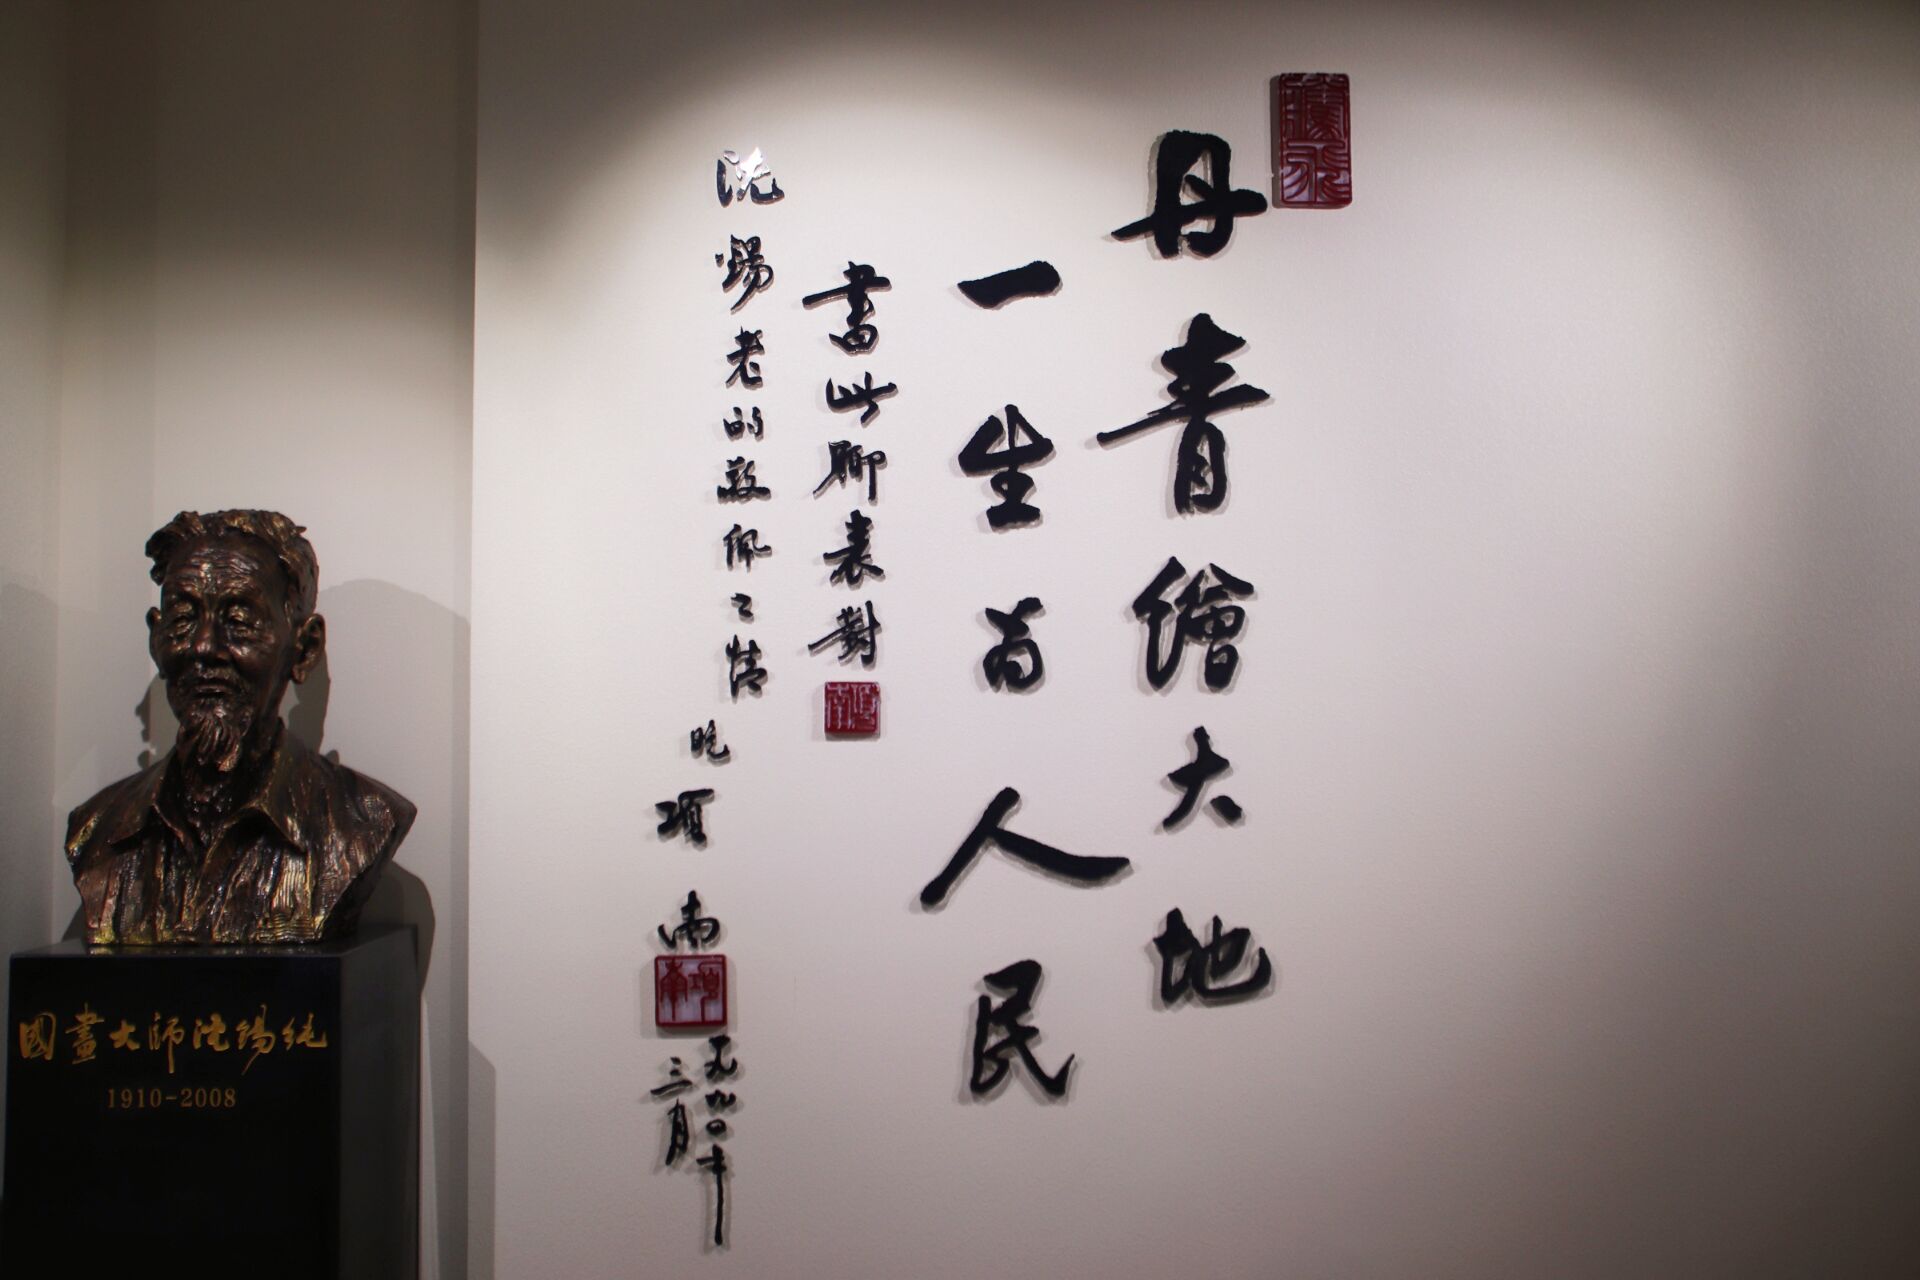 丹青繪大地
一生为人民
書此聊表對
沈錫老的敬佩之情
晚項南
一九九〇年
三月
項南
國畫大師沈錫純
1910-2008